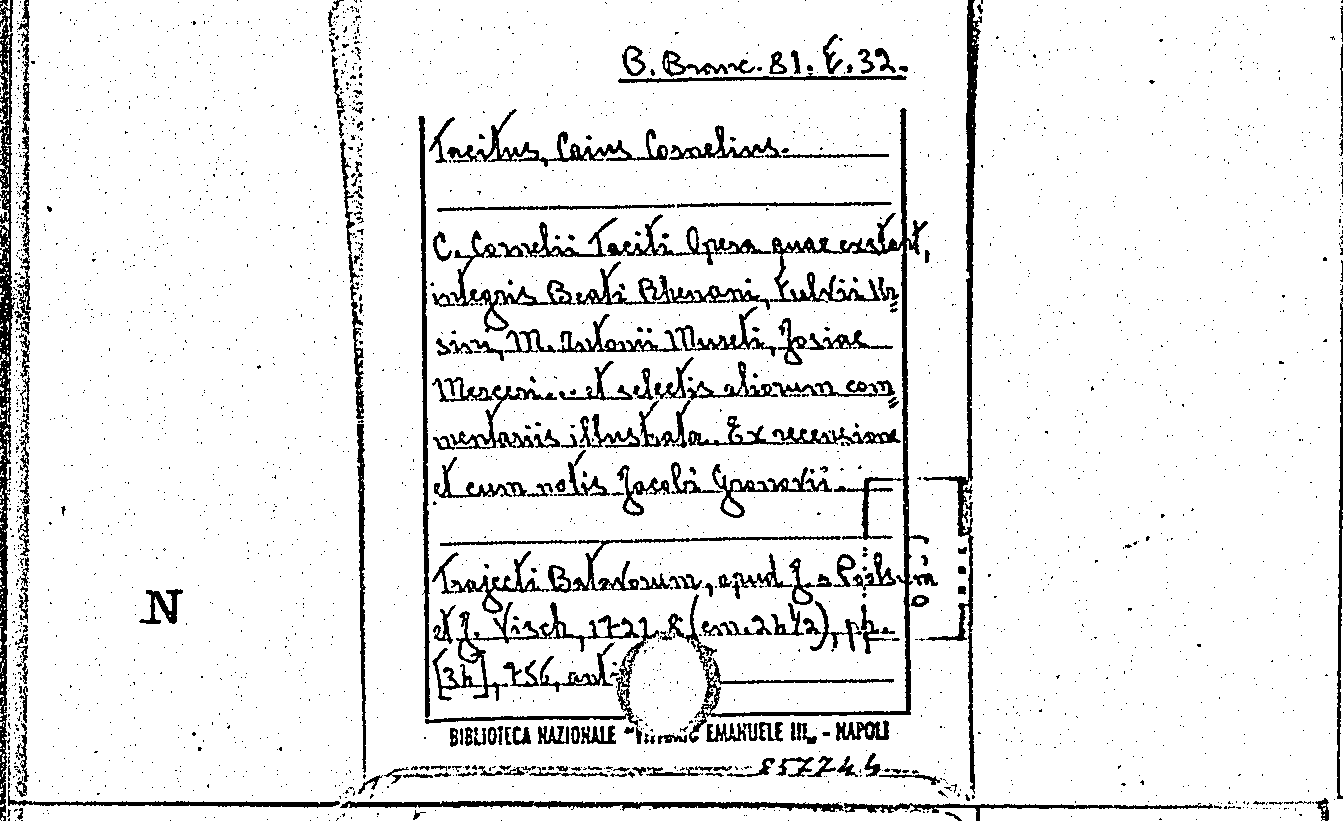 B. Branc. 81. E. 32.
Tacitus, Caius Cornelius.
C. Cornelii Taciti Opera quae exstant,
integris Beati Rhenani, Fulvii Ur=
sini, M. Antonii Mureti, Josiae
Merceri... et selectis aliorum com=
mentariis illustrata. Ex recensione
et cum notis Jacobi Gronovii.
Trajecti Batavorum, apud J. a Poolsum
et J. Visch, 1721. 8 (cm. 24½), pp.
N
[34], 756, anti
BIBLIOTECA NAZIONALE "VITTORIO EMANUELE III„ - NAPOLI
857244